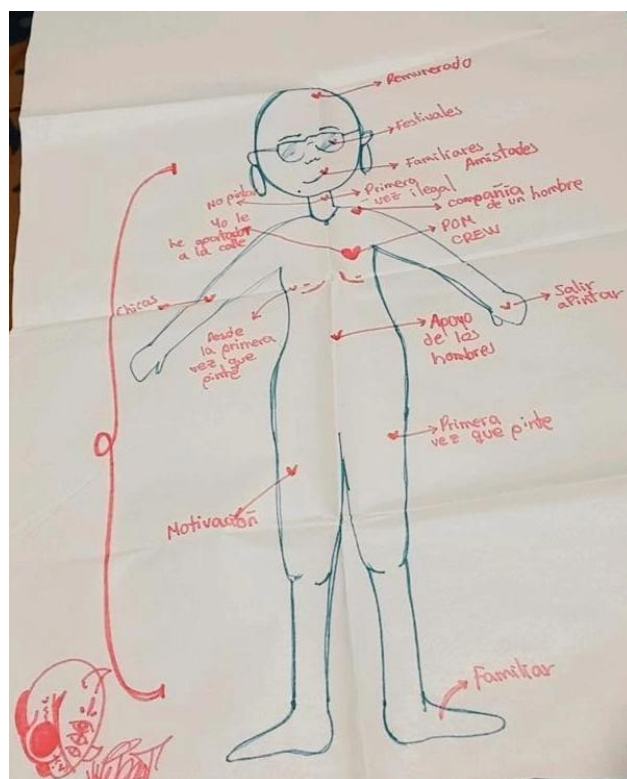 Remunerado
Festivales
Familiares
Amistades
Primera
vez ilegal
No pintar
compañia
de un hombre
Yo le
he aportado
a la calle
POM
CREW
Chicas
Salir
a Pintar
Desde
la primera
vez que
pinte
Apoyo
de los
hombres
Primera
vez que pinte
Motivación
Familiar